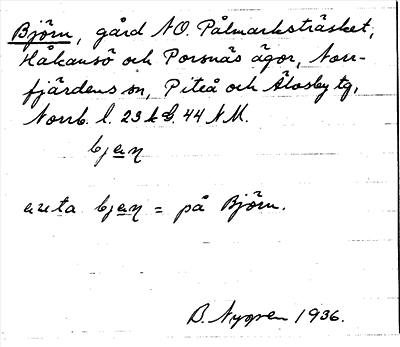 Björn, gård NO. Pålmarksträsket,
Håkansö och Porsnäs ägor, Norr-
fjärdens sn, Piteå och Älvsby tg,
Norrb. l. 23 k 44 NM.
bjan
bjan = på Björn.
B. Nygren 1936.